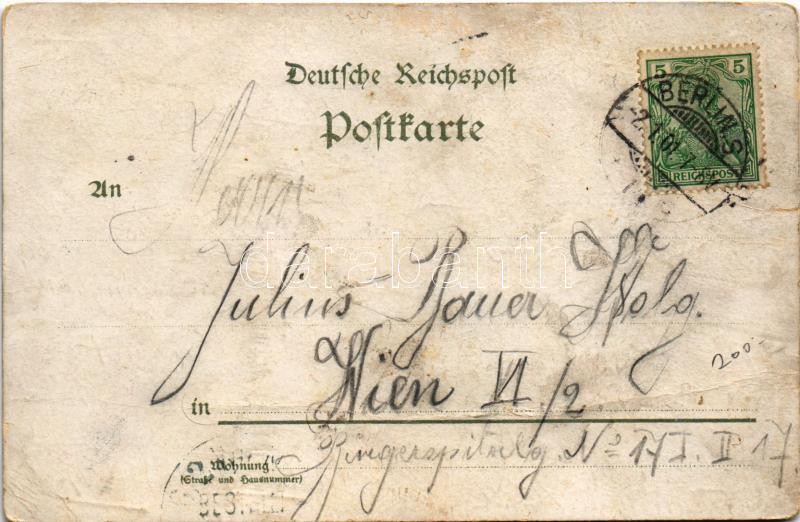 Deutsche Reichspost
Postkarte
5 5
REICHSPOST
BERLIN. S
An
darabanth
Julius Bauer
Wien VI/2.
in
No 17 I. II 17
200.-
Wohnung
(Straße und Hausnummer)